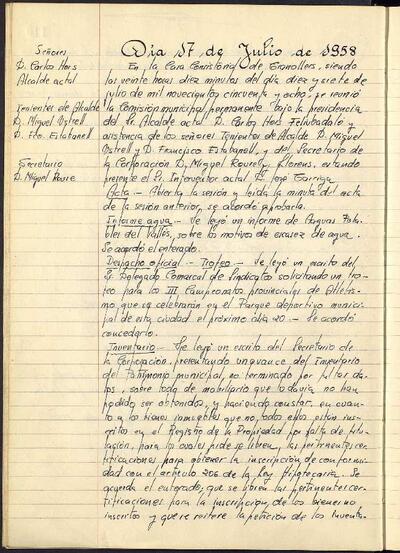 Día 17 de Julio de 1958
Señores
D. Carlos Hors
Alcalde actal
Tenientes de Alcalde
D. Miguel Ustrell
D. Fco. Estabanell
Secretario
D. Miguel Roure
En la Casa Consistorial de Granollers, siendo
las veinte horas diez minutos del día diez y siete de
julio de mil novecientos cincuenta y ocho, se reunió
la Comisión municipal permanente bajo la presidencia
del Sr. Alcalde actal D. Carlos Hors Feliubadaló y
asistencia de los señores Tenientes de Alcalde D. Miguel
Ustrell y D. Francisco Estabanell, y del Secretario de
la Corporación D. Miguel Roure Llorens, estando
presente el Sr. Interventor actal D. José Garriga
Acta - Abierta la sesión y leída la minuta del acta
de la sesión anterior, se acordó aprobarla.
Informe agua - Se leyó un informe de Aguas Pota-
bles del Vallés, sobre los motivos de escasez de agua.
Se acordó el enterado.
Despacho oficial - Trofeo - Se leyó un escrito del
Sr. Delegado Comarcal de Sindicatos solicitando un tro-
feo para los III Campeonatos provinciales de Atletis-
mo que se celebrarán en el Parque deportivo munici-
pal de esta ciudad el próximo día 20. - Se acordó
concederlo.
Inventario - Se leyó un escrito del Secretario de
la Corporación, presentando un avance del Inventario
del Patrimonio municipal, no terminado por faltar da-
tos, sobre todo de mobiliario que todavía no han
podido ser obtenidos, y haciendo constar, en cuan-
to a los bienes inmuebles que no todos ellos están ins-
critos en el Registro de la Propiedad por falta de titu-
lación, para los cuales pide se libren las pertinentes cer-
tificaciones para obtener la inscripción de conformi-
dad con el artículo 206 de la Ley Hipotecaria. Se
acuerda el enterado, que se libren las pertinentes cer-
tificaciones para la inscripción de los bienes no
inscritos y que se reitere la petición de los Inventa-